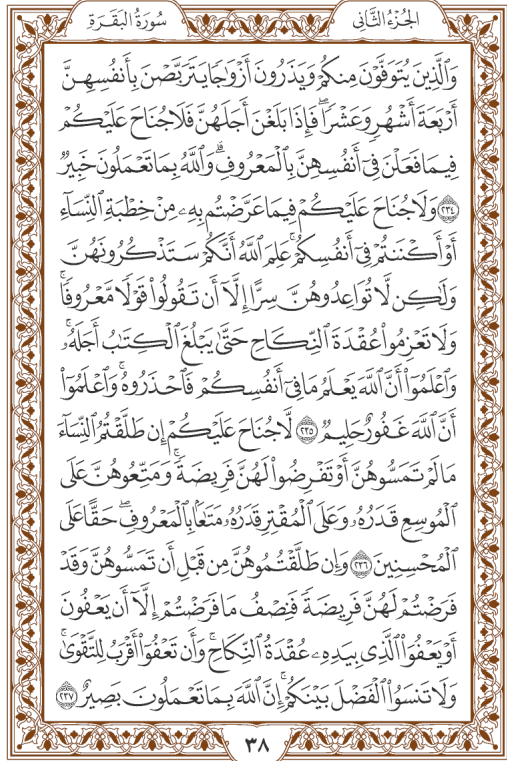 الجُزْءُ الثَّانِي
سُورَةُ البَقَرَةِ
وَٱلَّذِينَ يُتَوَفَّوْنَ مِنكُمْ وَيَذَرُونَ أَزْوَٰجًا يَتَرَبَّصْنَ بِأَنفُسِهِنَّ
أَرْبَعَةَ أَشْهُرٍ وَعَشْرًاۖ فَإِذَا بَلَغْنَ أَجَلَهُنَّ فَلَا جُنَاحَ عَلَيْكُمْ
فِيمَا فَعَلْنَ فِىٓ أَنفُسِهِنَّ بِٱلْمَعْرُوفِۗ وَٱللَّهُ بِمَا تَعْمَلُونَ خَبِيرٌ
٢٣٤ وَلَا جُنَاحَ عَلَيْكُمْ فِيمَا عَرَّضْتُم بِهِۦ مِنْ خِطْبَةِ ٱلنِّسَآءِ
أَوْ أَكْنَنتُمْ فِىٓ أَنفُسِكُمْۚ عَلِمَ ٱللَّهُ أَنَّكُمْ سَتَذْكُرُونَهُنَّ
وَلَٰكِن لَّا تُوَاعِدُوهُنَّ سِرًّا إِلَّآ أَن تَقُولُوا۟ قَوْلًا مَّعْرُوفًاۚ
وَلَا تَعْزِمُوا۟ عُقْدَةَ ٱلنِّكَاحِ حَتَّىٰ يَبْلُغَ ٱلْكِتَٰبُ أَجَلَهُۥۚ
وَٱعْلَمُوٓا۟ أَنَّ ٱللَّهَ يَعْلَمُ مَا فِىٓ أَنفُسِكُمْ فَٱحْذَرُوهُۚ وَٱعْلَمُوٓا۟
أَنَّ ٱللَّهَ غَفُورٌ حَلِيمٌ ٢٣٥ لَّا جُنَاحَ عَلَيْكُمْ إِن طَلَّقْتُمُ ٱلنِّسَآءَ
مَا لَمْ تَمَسُّوهُنَّ أَوْ تَفْرِضُوا۟ لَهُنَّ فَرِيضَةًۚ وَمَتِّعُوهُنَّ عَلَى
ٱلْمُوسِعِ قَدَرُهُۥ وَعَلَى ٱلْمُقْتِرِ قَدَرُهُۥ مَتَٰعًۢا بِٱلْمَعْرُوفِۖ حَقًّا عَلَى
ٱلْمُحْسِنِينَ ٢٣٦ وَإِن طَلَّقْتُمُوهُنَّ مِن قَبْلِ أَن تَمَسُّوهُنَّ وَقَدْ
فَرَضْتُمْ لَهُنَّ فَرِيضَةً فَنِصْفُ مَا فَرَضْتُمْ إِلَّآ أَن يَعْفُونَ
أَوْ يَعْفُوَا۟ ٱلَّذِى بِيَدِهِۦ عُقْدَةُ ٱلنِّكَاحِۚ وَأَن تَعْفُوٓا۟ أَقْرَبُ لِلتَّقْوَىٰۚ
وَلَا تَنسَوُا۟ ٱلْفَضْلَ بَيْنَكُمْۚ إِنَّ ٱللَّهَ بِمَا تَعْمَلُونَ بَصِيرٌ ٢٣٧
٣٨